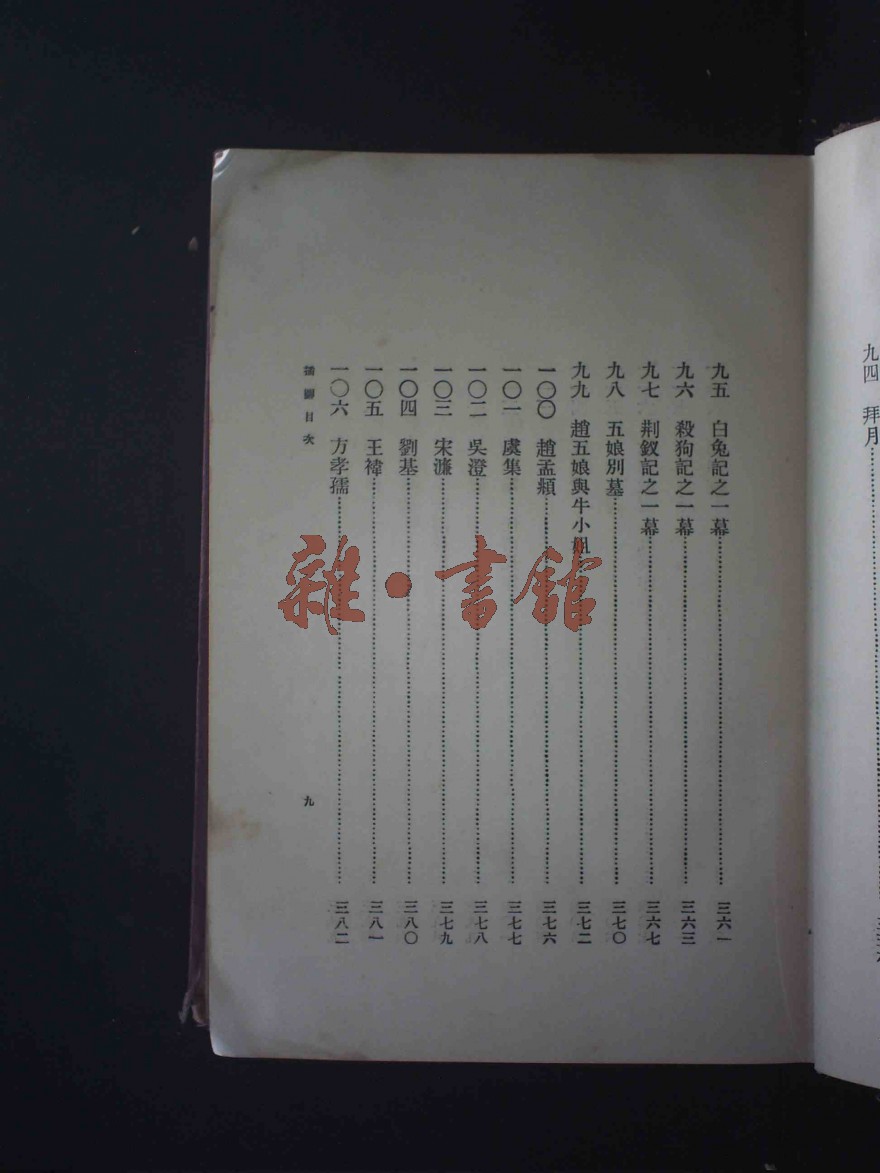 九四 拜月
九五 白兔記之一幕 三六一
九六 殺狗記之一幕 三六三
九七 荆釵記之一幕 三六七
九八 五娘別墓 三七〇
九九 趙五娘與牛小姐 三七二
一〇〇 趙孟頫 三七六
一〇一 虞集 三七七
一〇二 吳澄 三七八
一〇三 宋濂 三七九
一〇四 劉基 三八〇
一〇五 王褘 三八一
一〇六 方孝孺 三八二
插圖目次
九
雜·書館